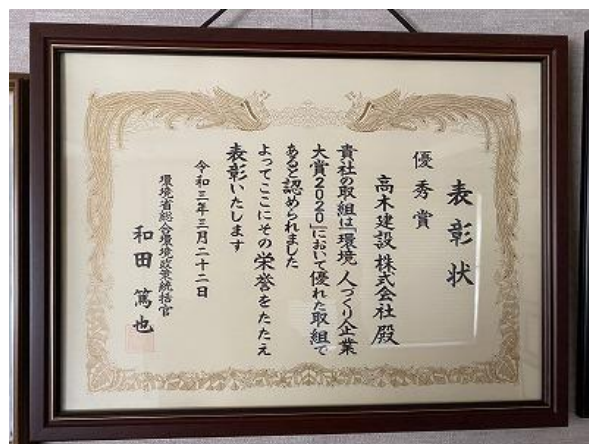 表彰状
優秀賞
高木建設株式会社殿
貴社の取組は「環境 人づくり企業
大賞2020」において優れた取組で
あると認められました
よってここにその栄誉をたたえ
表彰いたします
令和三年三月二十二日
環境省総合環境政策統括官
和田篤也